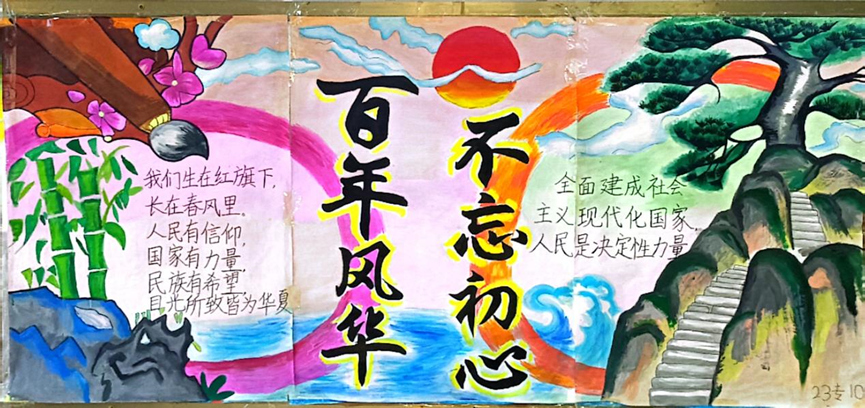 我们生在红旗下,
长在春风里,
人民有信仰,
国家有力量,
民族有希望
目光所致皆为华夏
百年风华
不忘初心
全面建成社会
主义现代化国家,
人民是决定性力量
23专10